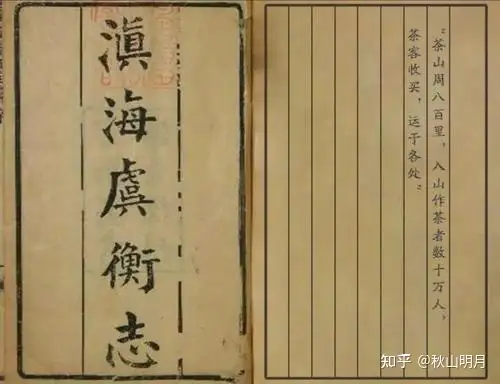 滇海虞衡志
“茶山周八百里，入山作茶者数十万人，
茶客收买，运于各处”
知乎 @秋山明月